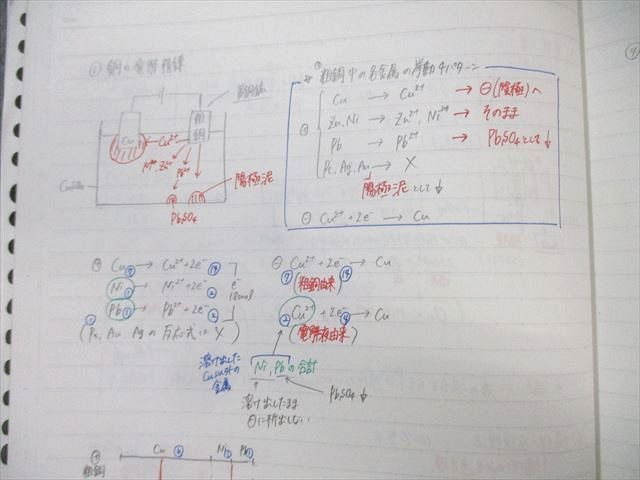 ① 銅の電解精錬
Cu
粗銅
Cu²⁺
Ni²⁺, Zn²⁺
Pb²⁺
陽極泥
PbSO₄
粗銅中の各金属の挙動4パターン
⊕ Cu → Cu²⁺ → ⊖(陰極)へ
Zn, Ni → Zn²⁺, Ni²⁺ → そのまま
Pb → Pb²⁺ → PbSO₄として↓
Pt, Ag, Au → X
陽極泥として↓
⊖ Cu²⁺ + 2e⁻ → Cu
⊕ Cu → Cu²⁺ + 2e⁻
Ni → Ni²⁺ + 2e⁻
Pb → Pb²⁺ + 2e⁻
(Pt, Au, Agの反応式は X
⊖ Cu²⁺ + 2e⁻ → Cu
(粗銅由来)
Cu²⁺ + 2e⁻ → Cu
(電解液由来)
溶け出した
Cu以外の
金属
Ni, Pbの合計
溶け出したまま
⊖に析出しない
PbSO₄↓
⊕ 粗銅
Cu Ni Pb